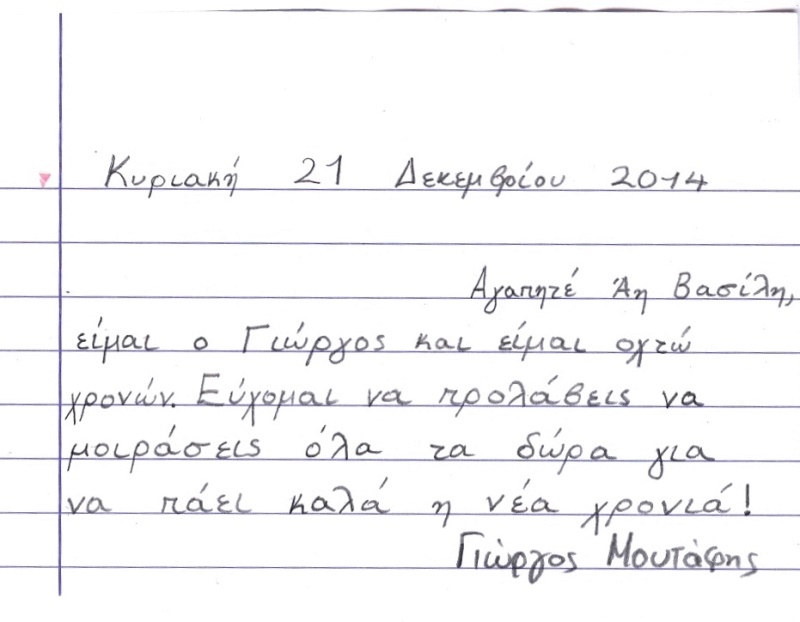 Κυριακή 21 Δεκεμβρίου 2014
Αγαπητέ Άη Βασίλη,
είμαι ο Γιώργος και είμαι οχτώ
χρονών. Εύχομαι να προλάβεις να
μοιράσεις όλα τα δώρα για
να πάει καλά η νέα χρονιά!
Γιώργος Μουτάφης